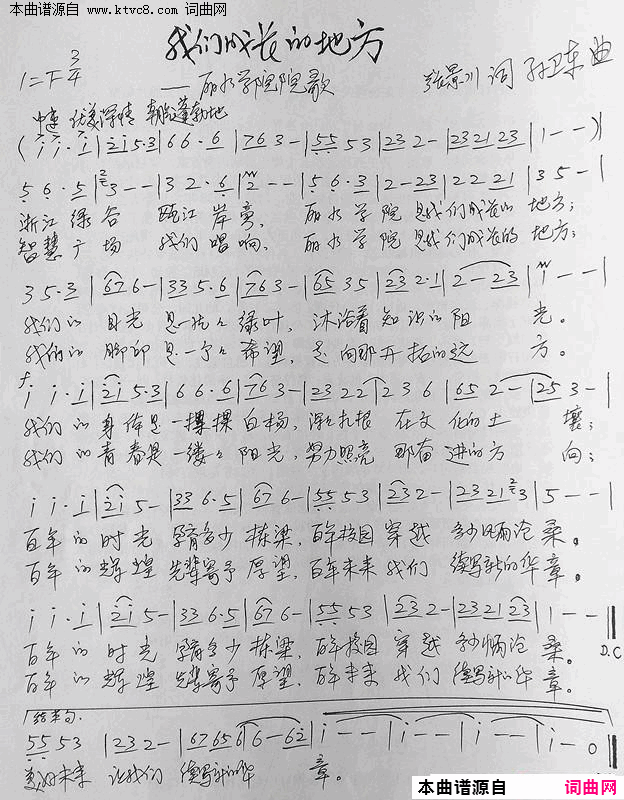 本曲谱源自 www.ktvc8.com 词曲网
我们成长的地方
1=F 3/4
——丽水学院院歌
张景川 词 孙卫东 曲
中速 优美深情 朝气蓬勃地
(i i· i | 2i 5·3 | 6 6·6 | 76 3 - | 55 53 | 23 2 - | 23 21 23 | 1 - - ) |
5 6·5 | 3 - - | 3 2·6 | 2 - - | 5 6·3 | 2 - 23 | 22 21 | 3 5 - |
浙江绿谷 瓯江岸旁, 丽水学院 是我们成长的 地方;
智慧广场 我们唱响, 丽水学院 是我们成长的 地方;
3 5·3 | 67 6 - | 33 5·6 | 76 3 - | 65 35 | 23 2·1 | 2 - 23 | i - - |
我们的 目光 是一片片 绿叶, 沐浴着 知识的 阳 光。
我们的 脚印 是一个个 希望, 走向那开拓的远 方。
f
i i·i | 2i 5·3 | 6 6·6 | 76 3 - | 23 22 | 2 3 6 | 65 2 - | 25 3 - |
我们的身体是一棵棵白杨, 深深扎根 在文化的土 壤;
我们的青春是一缕缕阳光, 努力照亮 那奋进的方 向;
i i·i | 2i 5 - | 33 6·5 | 67 6 - | 55 53 | 23 2 - | 23 21 3 | 5 - - |
百年的时光 孕育多少栋梁, 百年校园 穿越 多少风雨沧桑。
百年的辉煌 先辈寄予厚望, 百年未来 我们 续写新的华章。
i i·i | 2i 5 - | 33 6·5 | 67 6 - | 55 53 | 23 2 - | 23 21 23 | 1 - - ‖
D.C
百年的时光 孕育多少栋梁, 百年校园 穿越 多少风雨沧桑。
百年的辉煌 先辈寄予厚望, 百年未来 我们 续写新的华章。
结束句.
55 53 | 23 2 - | 67 65 6 | 6 - 62 | i - - | i - - | i - - | i - 0 ‖
美好未来 让我们 续写新的华 章。
本曲谱源自 词曲网